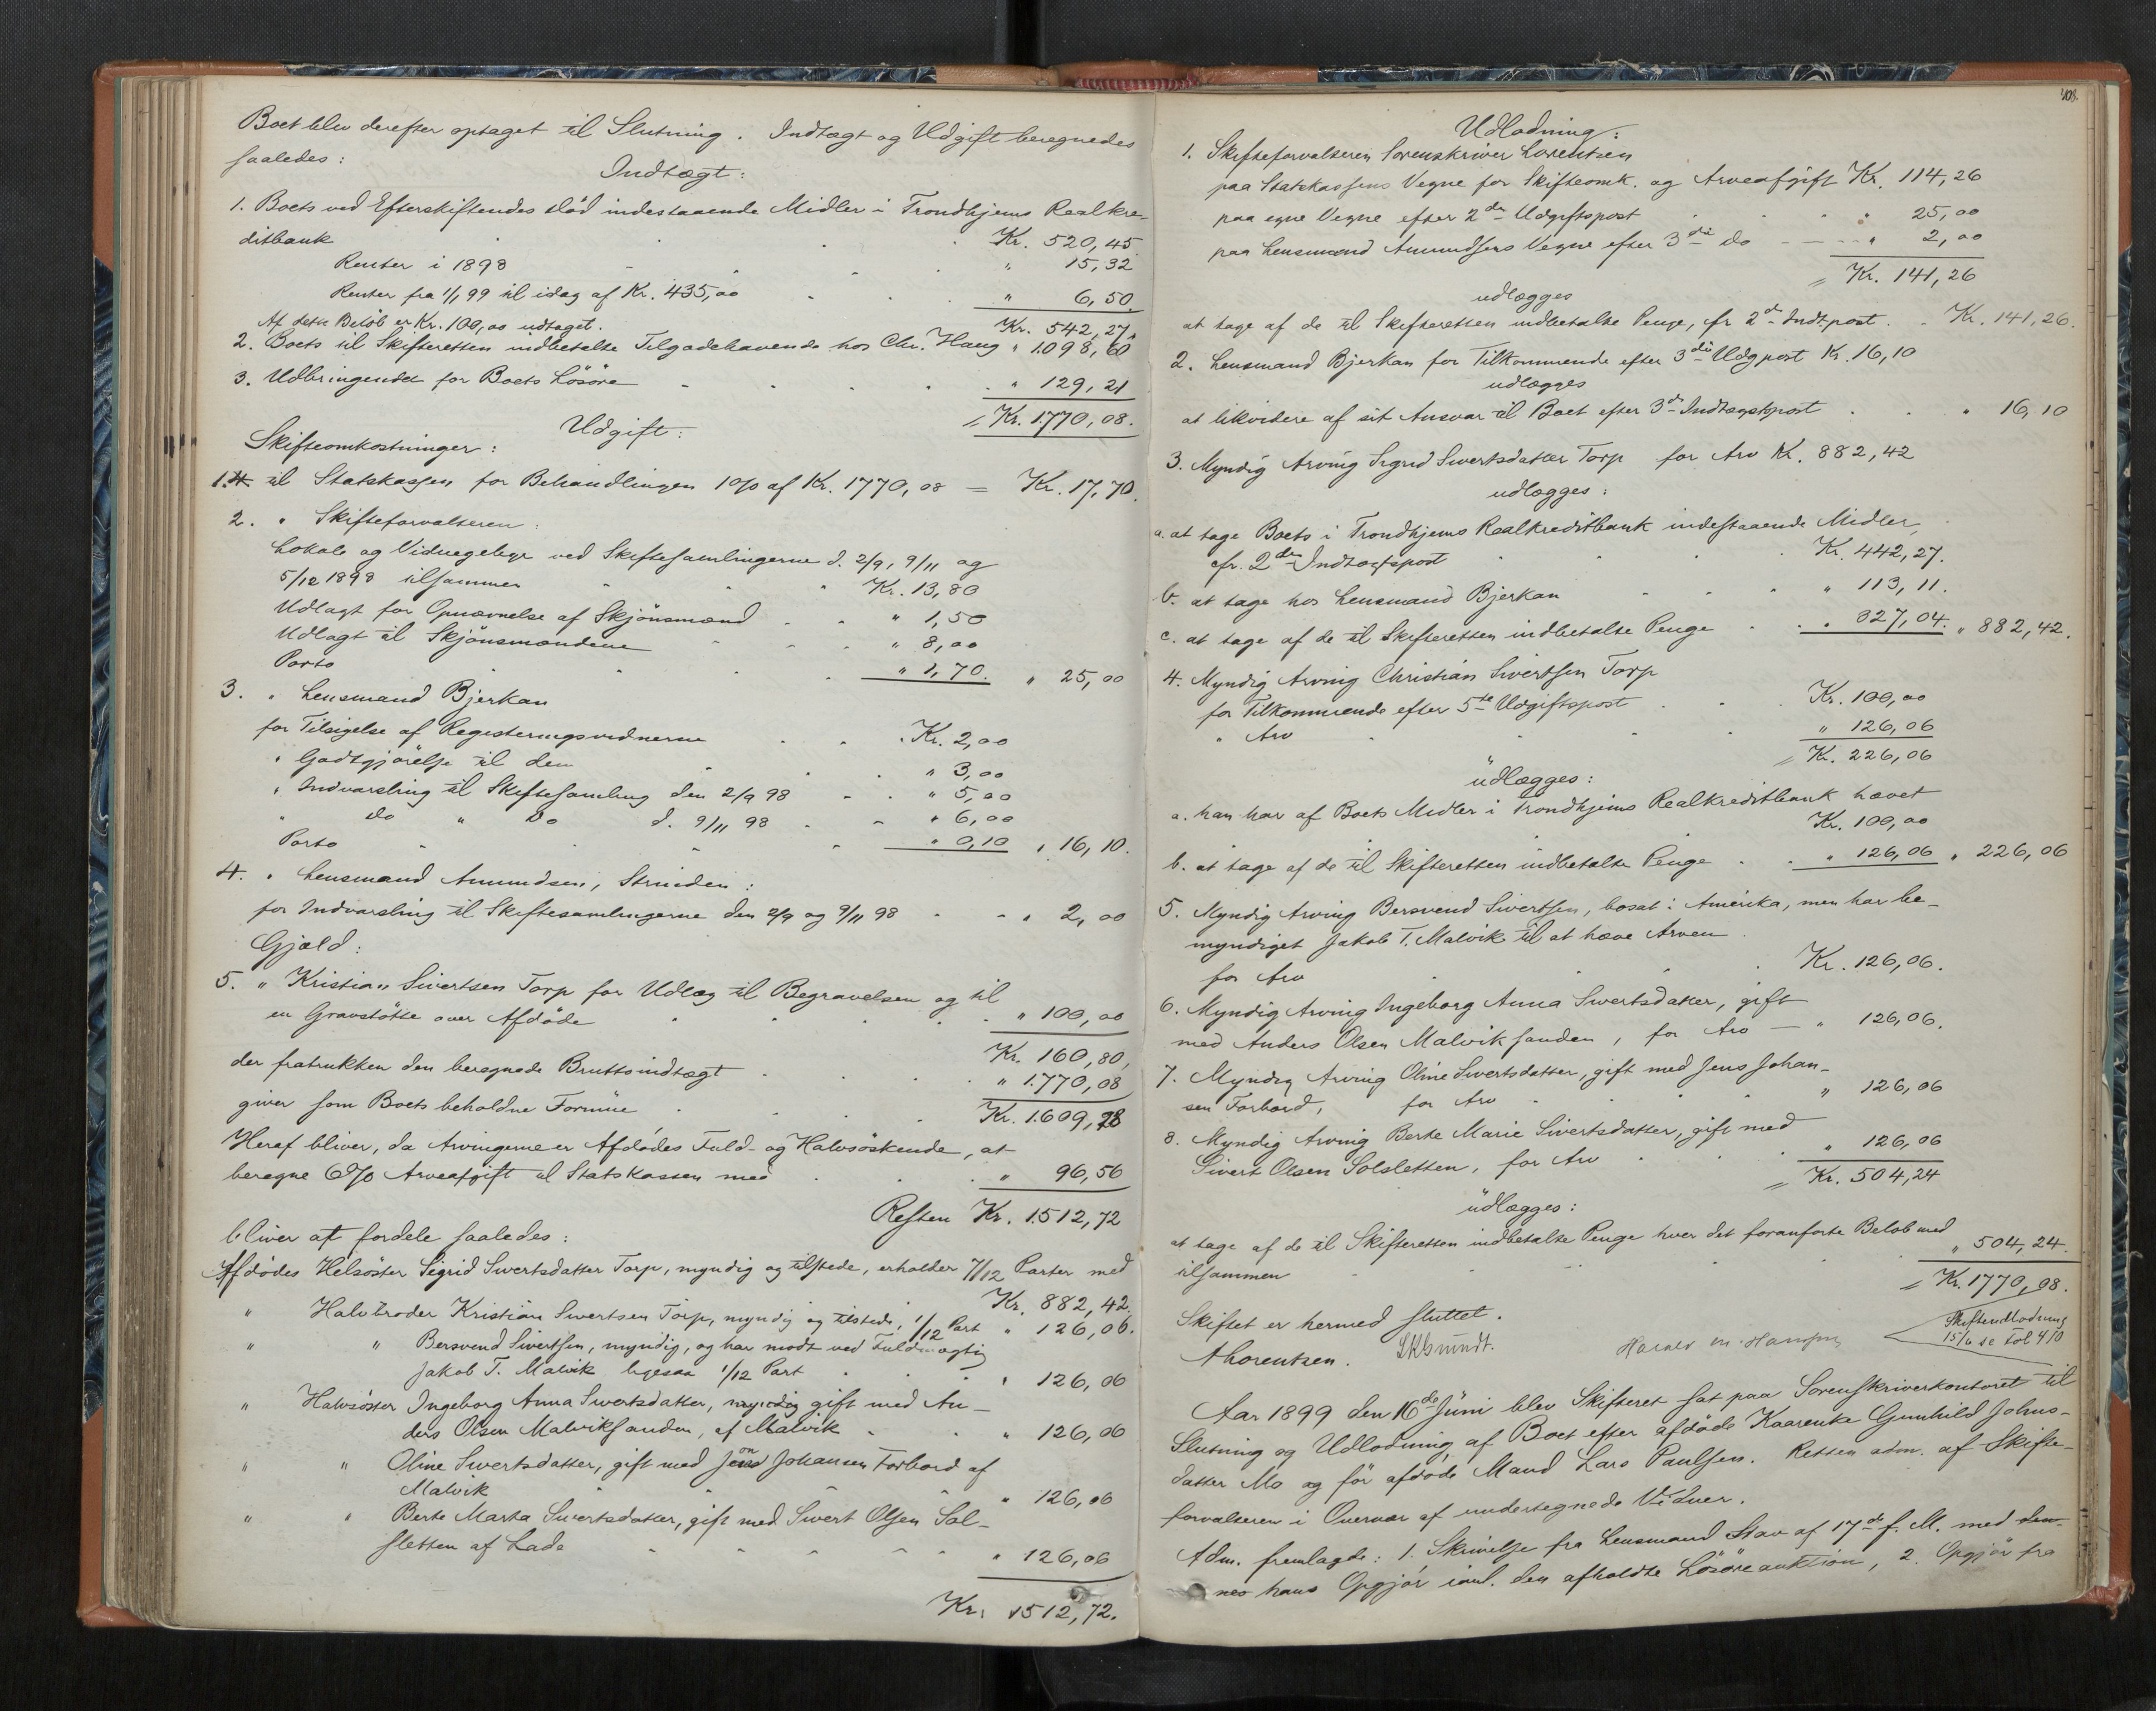 Boet blev derefter optaget til Slutning. Indtægt og Udgift beregnedes
saaledes:
Indtægt:
1. Boets ved Efterskiftendes död indestaaende Midler i Trondhjems Realkre-
ditbank Kr. 520,45
Renter i 1898 " 15,32
Renter fra 1/1 99 til idag af Kr. 435,00 " 6,50
Af dette Belöb er Kr. 100,00 udtaget. Kr. 542,27
2. Boets til Skifteretten indbetalte Tilgodehavende hos Chr. Haug " 1098,60
3. Udbringendet for Boets Lösöre " 129,21
= Kr. 1770,08.
Udgift:
Skifteomkostninger:
1. til Statskassen for Behandlingen 1 0/0 af Kr. 1770,08 = Kr. 17,70.
2. " Skifteforvalteren:
Lokale og Vidnegebyr ved Skiftesamlingerne d. 2/9, 9/11 og
5/12 1898 tilsammen Kr. 13,80
Udlagt for Opnævnelse af Skjönsmænd " 1,50
Udlagt til Skjönsmændene " 8,00
Porto " 1,70. " 25,00
3. " Lensmand Bjerkan
for Tilsigelse af Registeringsvidnerne Kr. 2,00
" Godtgjörelse til dem " 3,00
" Indvarsling til Skiftesamling den 2/9 98 " 5,00
" do " do d. 9/11 98 " 6,00
Porto " 0,10 " 16,10.
4. " Lensmand Amundsen, Strinden:
for Indvarsling til Skiftesamlingerne den 2/9 og 9/11 98 " 2,00
Gjæld:
5. " Kristian Sivertsen Torp for Udlæg til Begravelsen og til
en Gravstötte over Afdöde " 100,00
Kr. 160,80,
der fratrukken den beregnede Bruttoindtægt " 1.770,08
giver som Boets beholdne Formue Kr. 1.609,28
Heraf bliver, da Arvingerne er Afdödes Fuld- og Halvsöskende, at
beregne 6 0/0 Arveafgift til Statskassen med " 96,56
Resten Kr. 1.512,72
bliver at fordele saaledes:
Afdödes Helsöster Sigrid Sivertsdatter Torp, myndig og tilstede, erholder 7/12 Parter med
Kr. 882,42.
" Halvbroder Kristian Sivertsen Torp, myndig og tilstede, 1/12 Part " 126,06.
" " Bersvend Sivertsen, myndig, og har mödt ved Fuldmægtig
Jakob T. Malvik ligesaa 1/12 Part " 126,06
" Halvsöster Ingeborg Anna Sivertsdatter, myndig gift med An-
ders Olsen Malviksanden, af Malvik " 126,06
" " Oline Sivertsdatter, gift med Jens Johansen Forbord af
Malvik " 126,06
" " Berte Marta Sivertsdatter, gift med Sivert Olsen Sol-
sletten af Lade " 126,06
Kr. 1512,72.
408.
Udlodning:
1. Skifteforvalteren Sorenskriver Lorentzen
paa Statskassens Vegne for Skifteomk. og Arveafgift Kr. 114,26
paa egne Vegne efter 2den Udgiftspost " 25,00
paa Lensmand Amundsens Vegne efter 3die do " 2,00
= Kr. 141,26
udlægges
at tage af de til Skifteretten indbetalte Penge, cfr 2den Indt.post. Kr. 141,26.
2. Lensmand Bjerkan for Tilkommende efter 3die Udgpost Kr. 16,10
udlægges
at likvidere af sit Ansvar til Boet efter 3die Indtægtspost " 16,10
3. Myndig Arving Sigrid Sivertsdatter Torp for Arv Kr. 882,42
udlægges:
a. at tage Boets i Trondhjems Realkreditbank indestaaende Midler,
cfr. 2den Indtægtspost Kr. 442,27.
b. at tage hos Lensmand Bjerkan " 113,11.
c. at tage af de til Skifteretten indbetalte Penge " 327,04. " 882,42.
4. Myndig Arving Christian Sivertsen Torp
for Tilkommende efter 5te Udgiftspost Kr. 100,00
" Arv " 126,06
= Kr. 226,06
udlægges:
a. han har af Boets Midler i Trondhjems Realkreditbank hævet
Kr. 100,00
b. at tage af de til Skifteretten indbetalte Penge " 126,06 " 226,06
5. Myndig Arving Bersvend Sivertsen, bosat i Amerika, men har be-
myndiget Jakob T. Malvik til at hæve Arven
for Arv Kr. 126,06.
6. Myndig Arving Ingeborg Anna Sivertsdatter, gift
med Anders Olsen Malviksanden, for Arv " 126,06.
7. Myndig Arving Oline Sivertsdatter, gift med Jens Johan-
sen Forbord, for Arv " 126,06
8. Myndig Arving Berte Marie Sivertsdatter, gift med
Sivert Olsen Solsletten, for Arv " 126,06
= Kr. 504,24
udlægges:
at tage af de til Skifteretten indbetalte Penge hver det foranförte Belöb med
tilsammen " 504,24.
= Kr. 1770,08.
Skiftet er hermed sluttet.
Skifteudlodning
15/6 se Fol 410
A Lorentzen. Harald M. Hansen
Aar 1899 den 16de Juni blev Skifteret sat paa Sorenskriverkontoret til
Slutning og Udlodning af Boet efter afdöde Kaarenke Gunhild Johns-
datter Mo og för afdöde Mand Lars Paulsen. Retten adm. af Skifte-
forvalteren i Overvær af undertegnede Vidner.
Adm. fremlagde: 1. Skrivelse fra Lensmand Stav af 17de f. M. med den-
nes hans Opgjör inl. den afholdte Lösöreauktion, 2. Opgjör fra